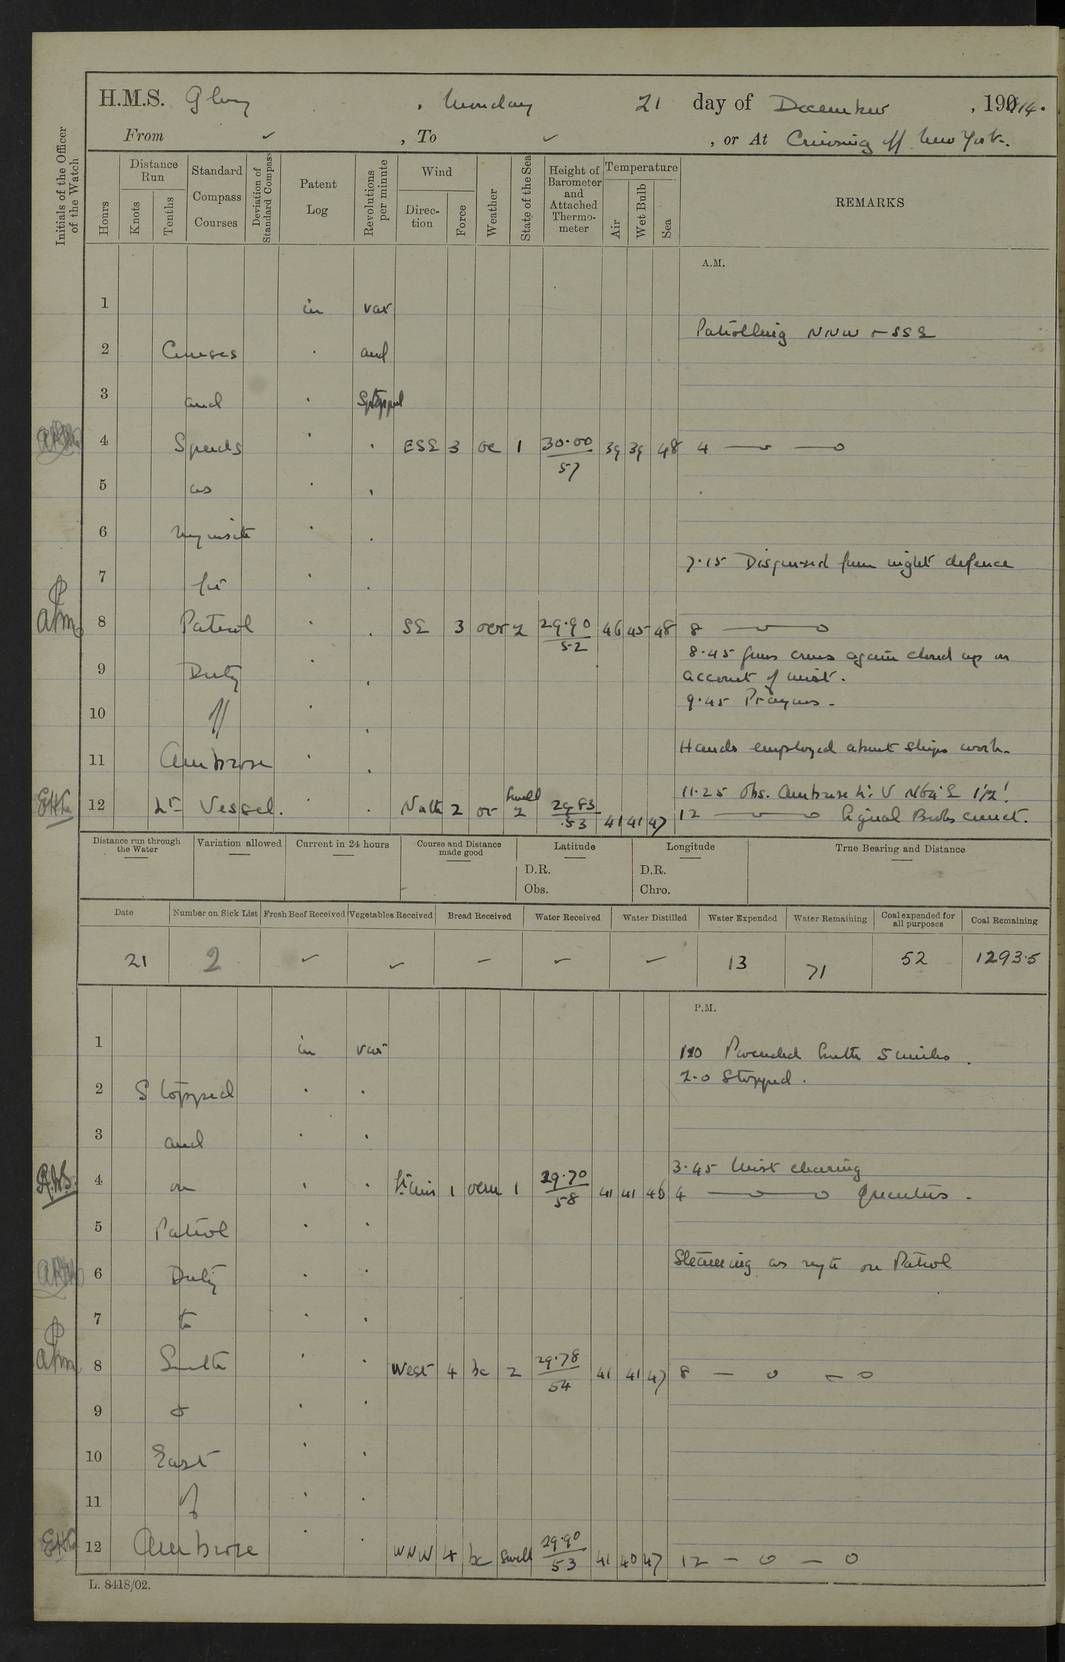 H.M.S. Glory , Monday 21 day of December , 1914.
From ✓ , To ✓ , or At Cruising off New York.
Initials of the Officer of the Watch
Hours
Distance Run
Knots
Tenths
Standard Compass Courses
Deviation of Standard Compass
Patent Log
Revolutions per minute
Wind
Direction
Force
Weather
State of the Sea
Height of Barometer and Attached Thermometer
Temperature
Air
Wet Bulb
Sea
REMARKS
A.M.
1 in var
Patrolling NNW - SSE
2 Courses and
3 and Stopped
4 Speeds ESE 3 oc 1 30.00 57 39 39 48 4
5 as
6 requisite
7.15 Dispersed from night defence
7 for
8 Patrol SE 3 ocr 2 29.90 52 46 45 48 8
8.45 Guns crews again closed up on
9 Duty account of mist.
9.45 Prayers.
10 off
Hands employed about Ships work.
11 Ambrose
11.25 Obs. Ambrose Lt. V N64°E 1½'
12 Lt Vessel. North 2 or Swell 2 29.83 53 41 41 47 12 Signal Books correct.
Distance run through the Water
Variation allowed
Current in 24 hours
Course and Distance made good
Latitude
D.R.
Obs.
Longitude
D.R.
Chro.
True Bearing and Distance
Date Number on Sick List Fresh Beef Received Vegetables Received Bread Received Water Received Water Distilled Water Expended Water Remaining Coal expended for all purposes Coal Remaining
21 2 ✓ ✓ – ✓ – 13 71 52 1293.5
P.M.
1 in var 1.20 Proceeded South 5 miles.
2.0 Stopped.
2 Stopped
3 and
3.45 Mist clearing
4 on 1 1 29.70 58 41 41 46 4 Quarters.
5 Patrol
Steaming as reqte on Patrol
6 Duty
7 to
8 South West 4 bc 2 29.78 54 41 41 47 8
9 &
10 East
11 of
12 Ambrose WNW 4 bc Swell 29.90 53 41 40 47 12
L. 8418/02.